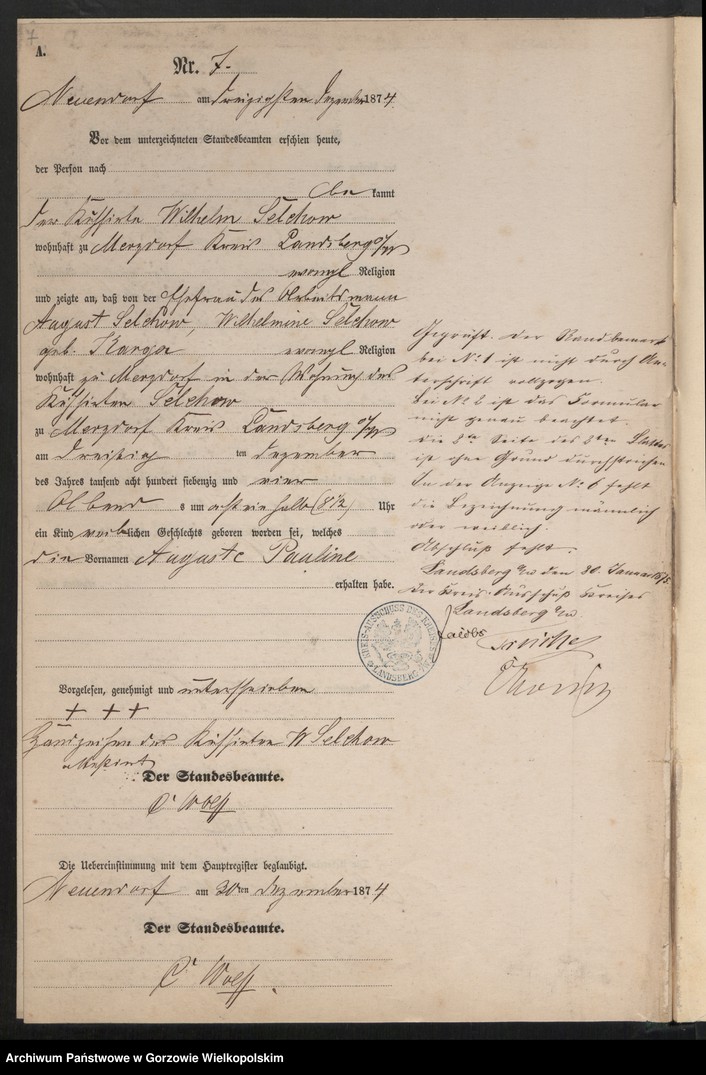 7
A.
Nr. 7.
Neuendorf am dreizigsten Dezember 1874.
Vor dem unterzeichneten Standesbeamten erschien heute,
der Person nach
bekannt
der Wilhelm Selchow
wohnhaft zu Merzdorf Kreis Landsberg a/W
evangl Religion
und zeigte an, daß von der Ehefrau des Arbeitsmann
August Selchow, Wilhelmine Selchow
geb. Karge evangl Religion
wohnhaft zu Merzdorf in der Wohnung des
Selchow
zu Merzdorf Kreis Landsberg a/W
am dreißig ten Dezember
des Jahres tausend acht hundert siebenzig und vier
Abend s um acht ein halb (8 1/2) Uhr
ein Kind weiblichen Geschlechts geboren worden sei, welches
die Vornamen Auguste Pauline
erhalten habe.
Vorgelesen, genehmigt und unterschrieben
+ + +
Handzeichen des W Selchow
attestirt
Der Standesbeamte.
Wolff
Die Uebereinstimmung mit dem Hauptregister beglaubigt.
Neuendorf am 30ten Dezember 1874
Der Standesbeamte.
Wolff.
Geprüft. Der Randbemerk
bei No 1 ist nicht durch Un-
terschrift vollzogen.
Bei No 6 ist das Formular
nicht genau beachtet.
Die 2te Seite des 8ten Blattes
ist ohne Grund durchstrichen
In der Anzeige No 6 fehlt
die Bezeichnung männlich
oder weiblich.
Abschluß fehlt.
Landsberg a/W den 30. Januar 1875.
Der Kreis-Ausschuß Kreises
Landsberg a/W.
Jacobs
KREIS-AUSSCHUSS DES KREISES LANDSBERG
Archiwum Państwowe w Gorzowie Wielkopolskim